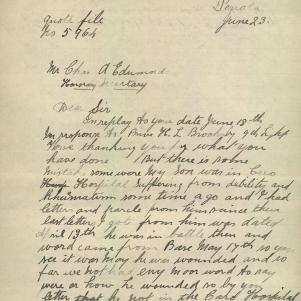 quote file
No 5964
June 23.
Mr Chas A Edmond
Honorary Secretary
Dear Sir
In replay to your date June 18th
In response to Prive H. L. Brookby 9th Lgt
Have thanking you for what you
have done But there is some
mistake some were My Son was in
Hospital Suffering from debility and
Rheumatism some time ago and I had
letters and parcle from him since then
last letter I got from him was dated
April 13th he was in battle then and
word came from Base May 17th so you
see it was may he was wounded and so
far we not had eny moor word to say
were or how he wounded so by you
letter that he not in the Cairo Hospital